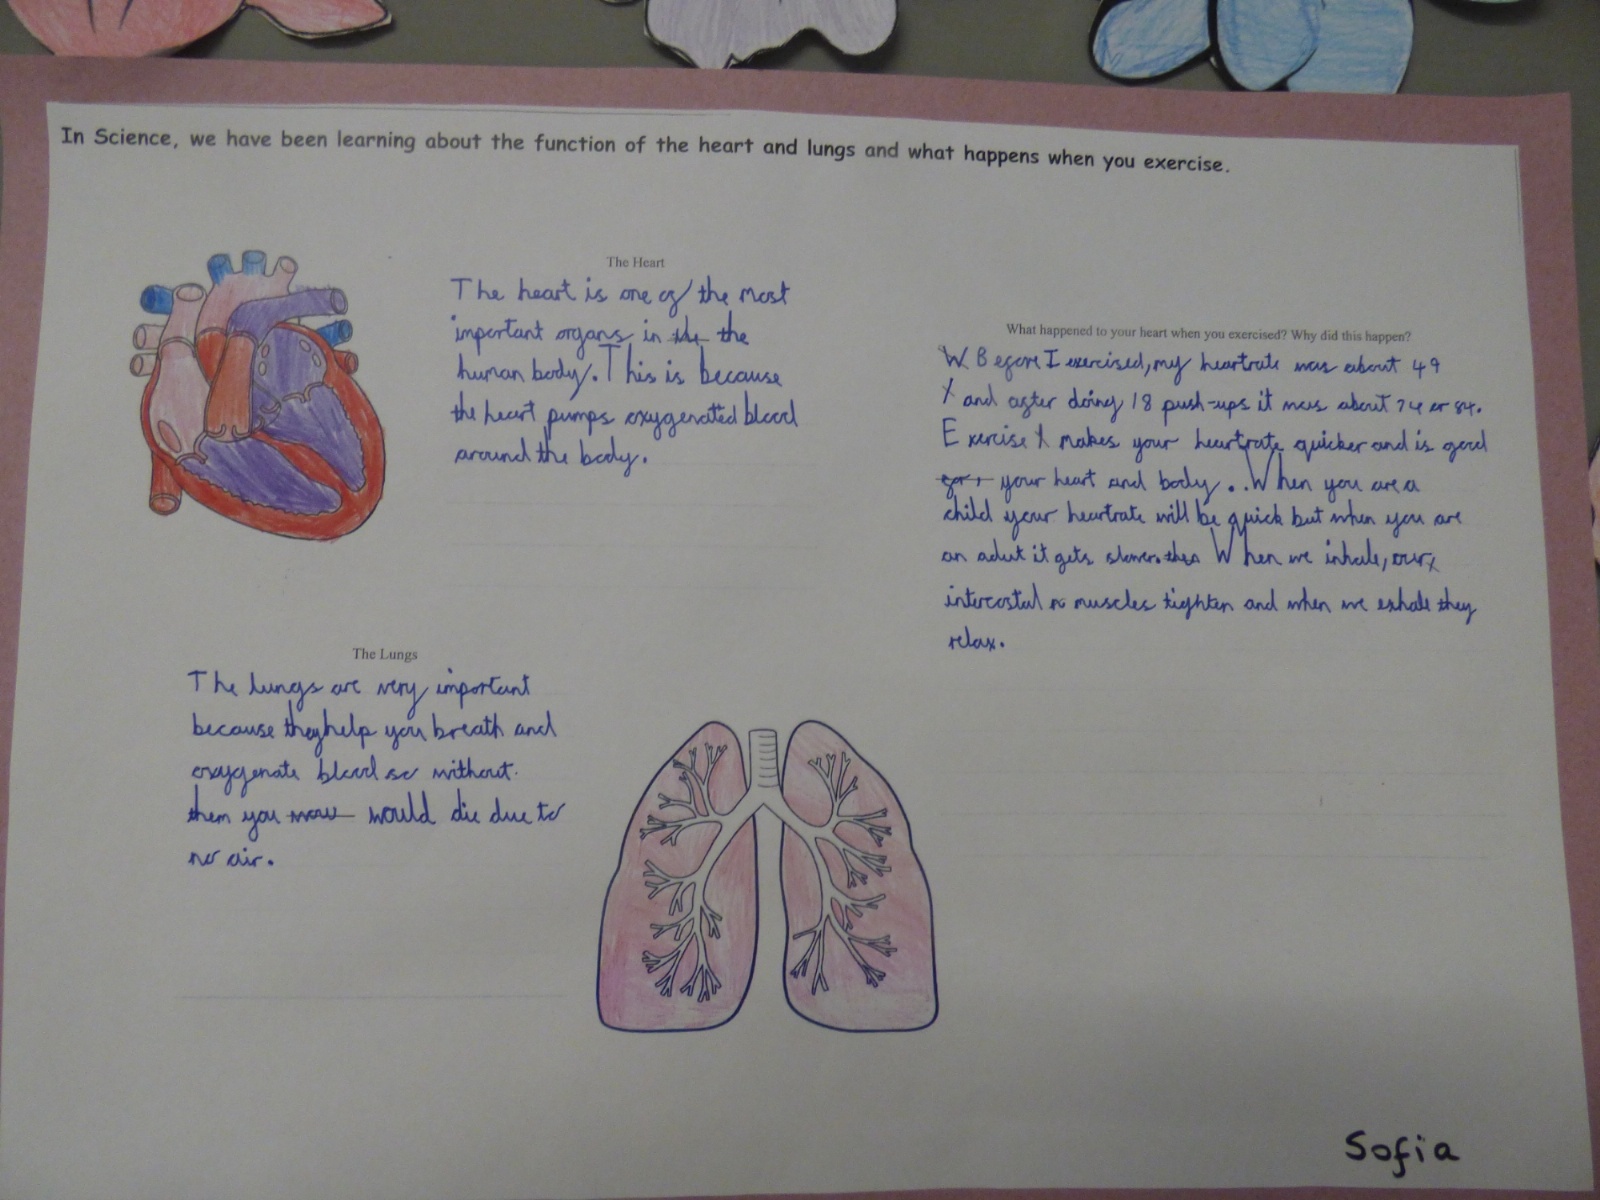 In Science, we have been learning about the function of the heart and lungs and what happens when you exercise.
The Heart
The heart is one of the most
important organs in the the
human body. This is because
the heart pumps oxygenated blood
around the body.
What happened to your heart when you exercised? Why did this happen?
W Before I exercised, my heartrate was about 49
and after doing 18 push-ups it was about 74 or 84.
Exercise makes your heartrate quicker and is good
for your heart and body. When you are a
child your heartrate will be quick but when you are
an adut it gets slower. When we inhale, our
intercostal muscles tighten and when we exhale they
relax.
The Lungs
The lungs are very important
because they help you breath and
oxygenate blood so without
them you would die due to
no air.
Sofia